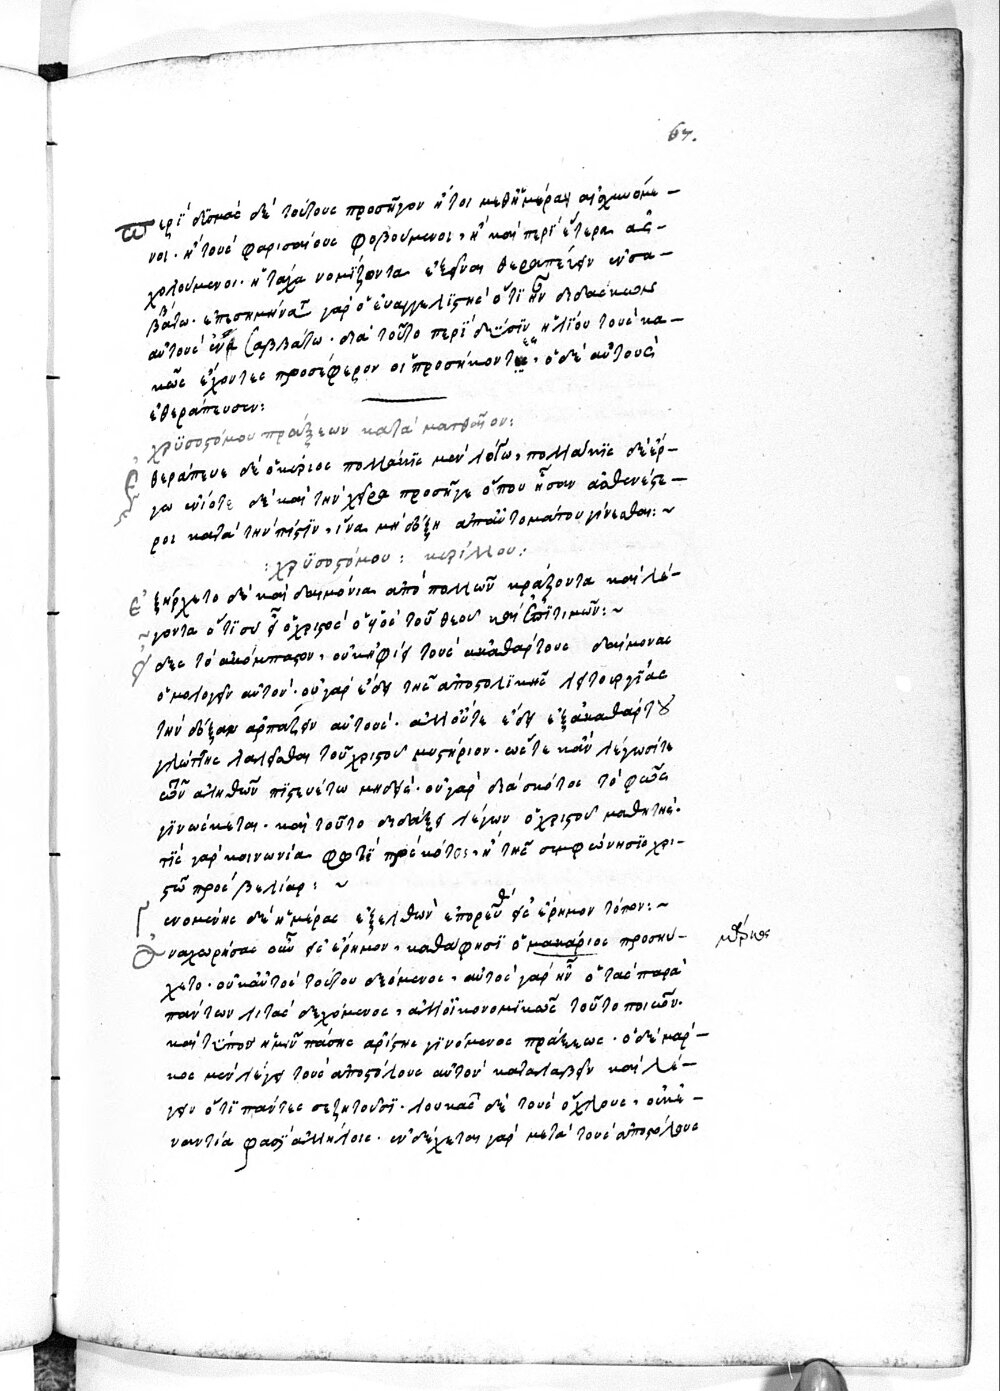 67.
Περὶ δυσμὰς δὲ τούτους προσῆγον ἤτοι μεθ' ἡμέραν αἰσχυνόμε-
νοι· ἢ τοὺς φαρισαίους φοβούμενοι, ἢ καὶ περὶ ἕτερα ἀσ-
χολούμενοι· ἢ τάχα νομίζοντα ἐξεῖναι θεραπεύειν ἐν σα-
βάτω· ἐπεσημήνατο γὰρ ὁ εὐαγγελιστὴς ὅτι ἦν διδάσκων
αὐτοὺς ἐν σαββάτω· διὰ τοῦτο περὶ δύσιν ἡλίου τοὺς κα-
κῶς ἔχοντες προσέφερον οἱ προσήκοντες, ὁ δὲ αὐτοὺς
ἐθεράπευσεν:
χρυσοστόμου πράξεων κατὰ ματθαῖον:
Ἐθεράπευε δὲ ὁ κύριος πολλάκις μὲν λόγω, πολλάκις δὲ ἔρ-
γω ἐνίοτε δὲ καὶ τὴν χεῖρα προσῆγε ὅπου ἦσαν ἀσθενέστε-
ροι κατὰ τὴν πίστιν, ἵνα μὴ δόξη ἀπαυτομάτου γίνεσθαι: ~
:χρυσοστόμου: κυρίλλου:
Ἐξήρχετο δὲ καὶ δαιμόνια ἀπὸ πολλῶν κράζοντα καὶ λέ-
γοντα ὅτι σὺ εἶ ὁ χριστὸς ὁ υἱὸς τοῦ θεοῦ καὶ ἐπιτιμῶν: ~
δες τὸ ἀκόμπαστον, οὐκ ἠφίει τοὺς ἀκαθάρτους δαίμονας
ὁμολογεῖν αὐτόν· οὐ γὰρ ἔδει τῆς ἀποστολικῆς λειτουργίας
τὴν δόξαν ἁρπάζειν αὐτοὺς· ἀλλ' οὔτε ἔδει ἐξ ἀκαθάρτου
γλώττης λαλεῖσθαι τοῦ χριστοῦ μυστήριον· ὥστε κἂν λέγωσί τε
τῶν ἀληθῶν πιστευέτω μηδείς· οὐ γὰρ διὰ σκότος τὸ φῶς
γινώσκεται· καὶ τοῦτο διδάξει λέγων ὁ χριστοῦ μαθητής·
τίς γὰρ κοινωνία φωτὶ πρὸς σκότος, ἢ τῆς συμφώνησις χρι-
στῶ πρὸς βελίαρ: ~
Γενομένης δὲ ἡμέρας ἐξελθὼν ἐπορεύθη εἰς ἔρημον τόπον: ~
ἀναχωρήσας οὖν εἰς ἔρημον, καθά φησιν ὁ μακάριος προσηύ-
χετο· οὐκ αὐτὸς τούτου δεόμενος, αὐτὸς γὰρ ἦν ὁ τὰς παρὰ
πάντων λιτὰς δεχόμενος, ἀλλ' οἰκονομικῶς τοῦτο ποιῶν·
καὶ τύπον ἡμῖν πάσης ἀρίστης γινόμενος πράξεως· ὁ δὲ μάρ-
κος μὲν λέγει τοὺς ἀποστόλους αὐτὸν καταλαβεῖν καὶ λέ-
γειν ὅτι πάντες σε ζητοῦσι· λουκᾶς δὲ τοὺς ὄχλους, οὐκ ἐ-
ναντία φασὶ ἀλλήλοις· ἐνδέχεται γὰρ μετὰ τοὺς ἀποστόλους